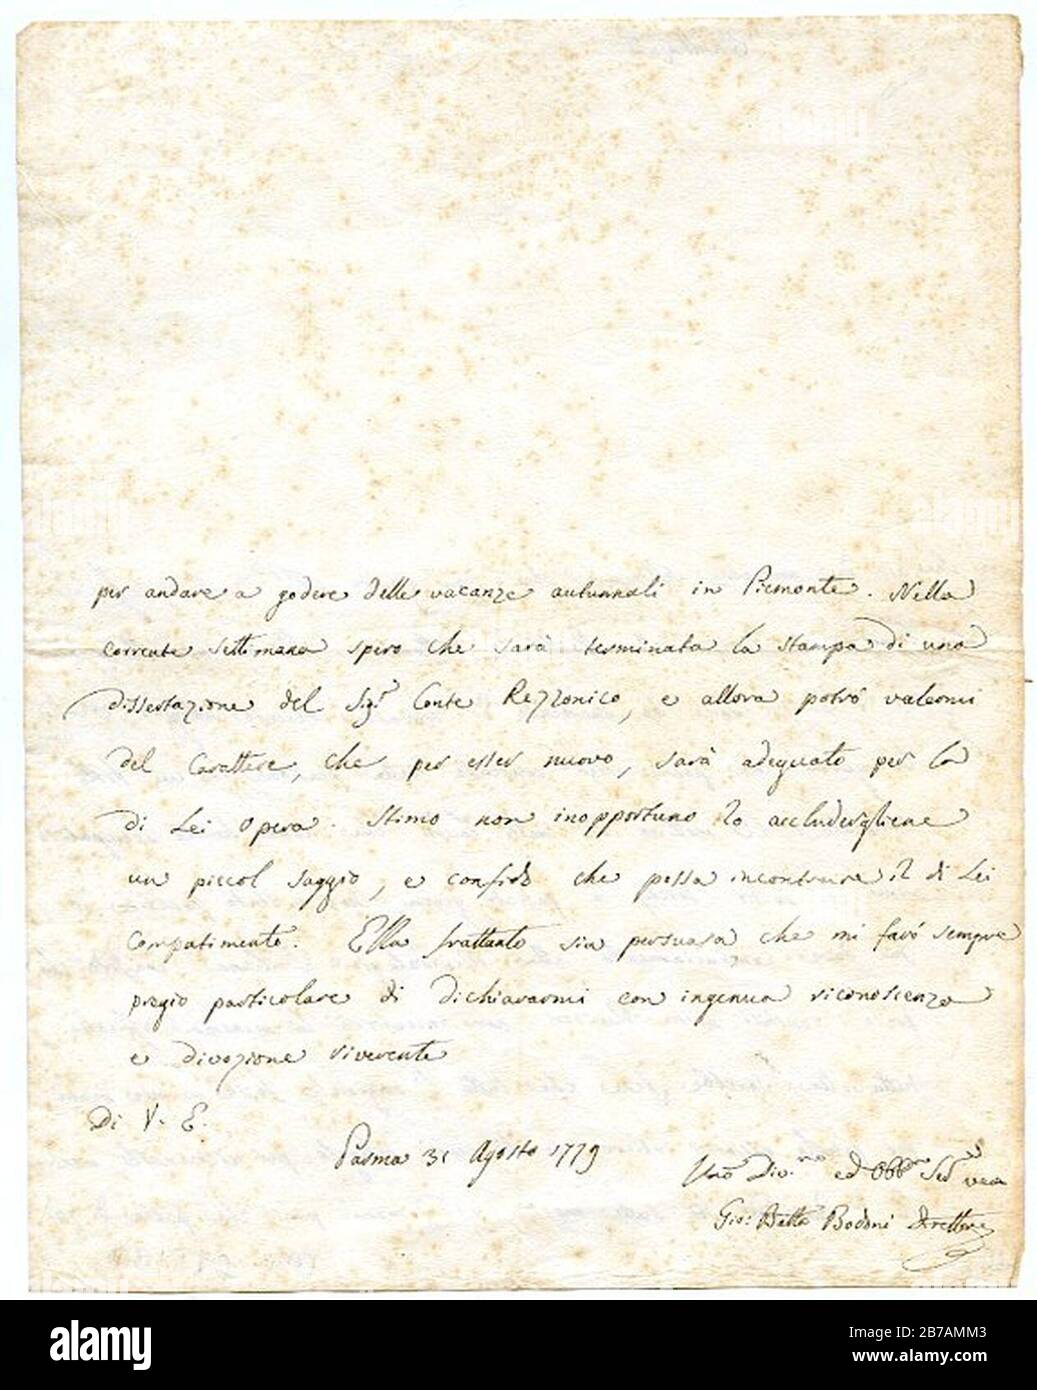 per andare a godere delle vacanze autunnali in Piemonte. Nella
corrente settimana spero che sarà terminata la stampa di una
dissertazione del Sigr Conte Rezzonico, e allora potrò valermi
del Carattere, che per esser nuovo, sarà adequato per la
di Lei opera. Stimo non inopportuno lo accludergliene
un piccol saggio, e confido che possa incontrare il di Lei
Compatimento. Ella frattanto sia persuasa che mi farò sempre
pregio particolare di dichiararmi con ingenua riconoscenza
e divozione riverente
Di V. E.
Parma 31 Agosto 1779
Umo Div.mo ed Obbmo Sere vero
Gio: Batta Bodoni Direttore
alamy
Image ID: 2B7AMM3
www.alamy.com